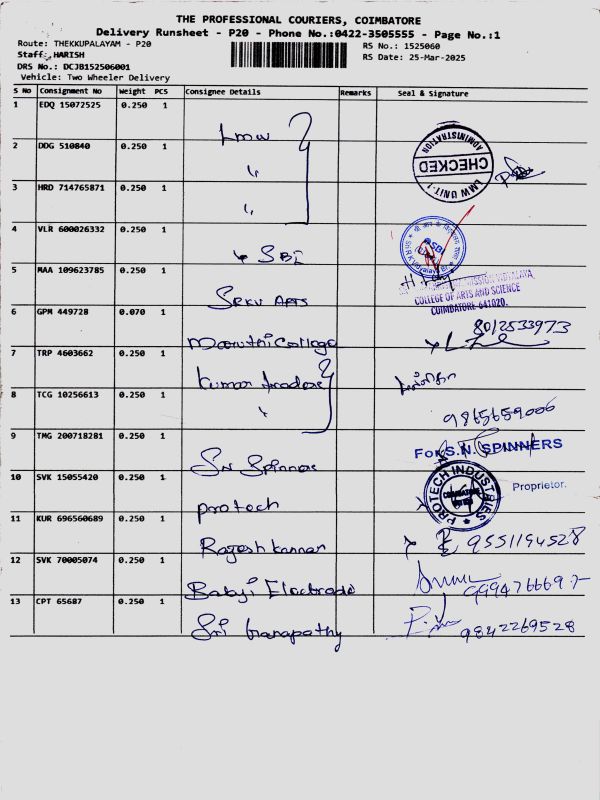 THE PROFESSIONAL COURIERS, COIMBATORE
Delivery Runsheet - P20 - Phone No.:0422-3505555 - Page No.:1
Route: THEKKUPALAYAM - P20
RS No.: 1525060
Staff: HARISH
RS Date: 25-Mar-2025
DRS No.: DCJB152506001
Vehicle: Two Wheeler Delivery
S No Consignment No Weight PCS Consignee Details Remarks Seal & Signature
1 EDQ 15072525 0.250 1 Lmw
2 DDG 510840 0.250 1 "
ADMINISTRATION
CHECKED
LMW UNIT-1
3 HRD 714765871 0.250 1 "
4 VLR 600026332 0.250 1 SBI
SBI
5 MAA 109623785 0.250 1 SRKV Arts
MISSION VIDYALAYA
COLLEGE OF ARTS AND SCIENCE
COIMBATORE 641020.
6 GPM 449728 0.070 1 Maruthi College
8012533973
7 TRP 4603662 0.250 1 Kumar traders
8 TCG 10256613 0.250 1 "
9865659006
9 TMG 200718281 0.250 1 SN Spinners
For S.N. SPINNERS
Proprietor.
10 SVK 15055420 0.250 1 Protech
PROTECH INDUSTRIES
COIMBATORE
11 KUR 696560689 0.250 1 Rajesh kannan
9551194528
12 SVK 70005074 0.250 1 Babyi Electrode
13 CPT 65687 0.250 1 Sri Ganapathy
9842269528